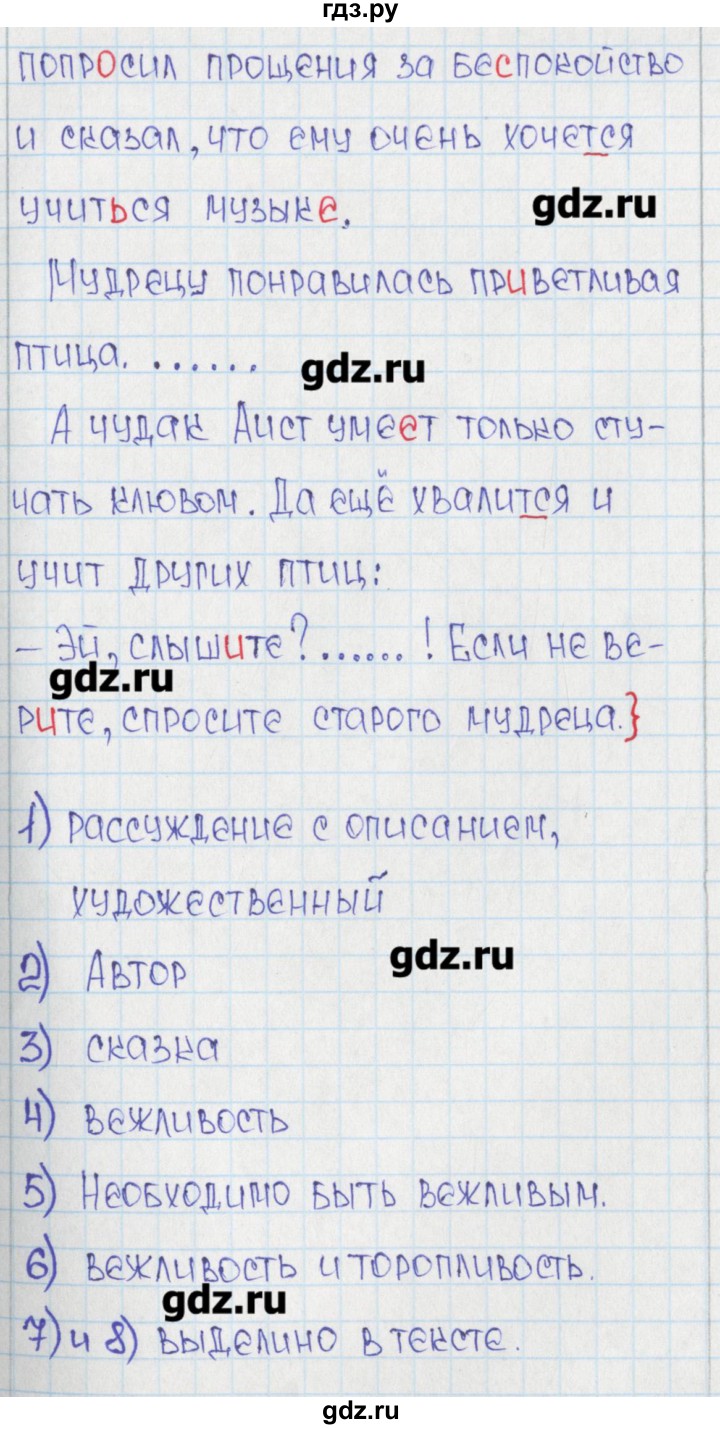 гдз.ру
попросил прощения за беспокойство
и сказал, что ему очень хочется
учиться музыке.
gdz.ru
Мудрецу понравилась приветливая
птица. ......
gdz.ru
А чудак Аист умеет только сту-
чать клювом. Да ещё хвалится и
учит других птиц:
– Эй, слышите?......! Если не ве-
gdz.ru
рите, спросите старого мудреца.}
1) рассуждение с описанием,
художественный
gdz.ru
2) Автор
3) сказка
4) вежливость
5) Необходимо быть вежливым.
6) вежливость и торопливость.
gdz.ru
7) и 8) выделино в тексте.
gdz.ru